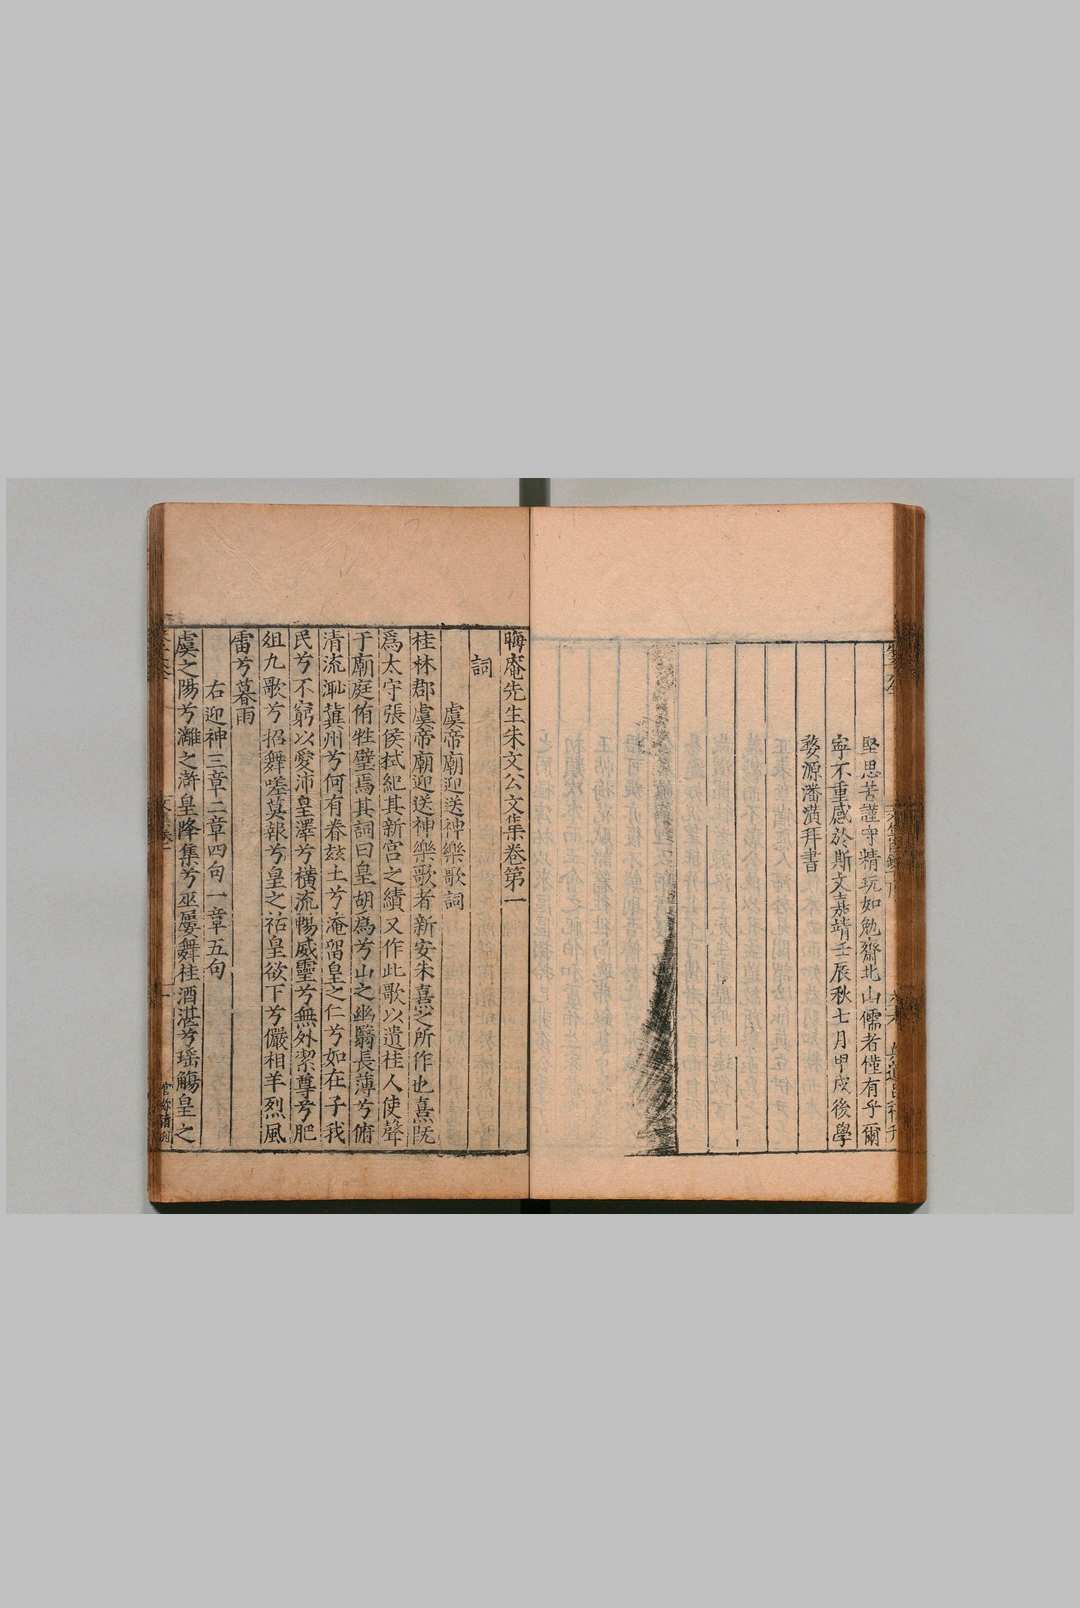 堅思苦謹守精玩如勉齋北山儒者僅有乎爾
寧不重感於斯文嘉靖壬辰秋七月甲戌後學
婺源潘潢拜書
晦庵先生朱文公文集卷第一
詞
虞帝廟迎送神樂歌詞
桂林郡虞帝廟迎送神樂歌者新安朱熹之所作也熹既
爲太守張侯栻紀其新宮之績又作此歌以遺桂人使聲
于廟庭侑牲璧焉其詞曰皇胡爲兮山之幽翳長薄兮俯
清流渺冀州兮何有眷玆土兮淹留皇之仁兮如在子我
民兮不窮以愛沛皇澤兮橫流暢威靈兮無外潔尊兮肥
俎九歌兮招舞嗟莫報兮皇之祜皇欲下兮儼相羊烈風
雷兮暮雨
右迎神三章二章四句一章五句
虞之陽兮灕之滸皇降集兮巫屢舞桂酒湛兮瑶觴皇之